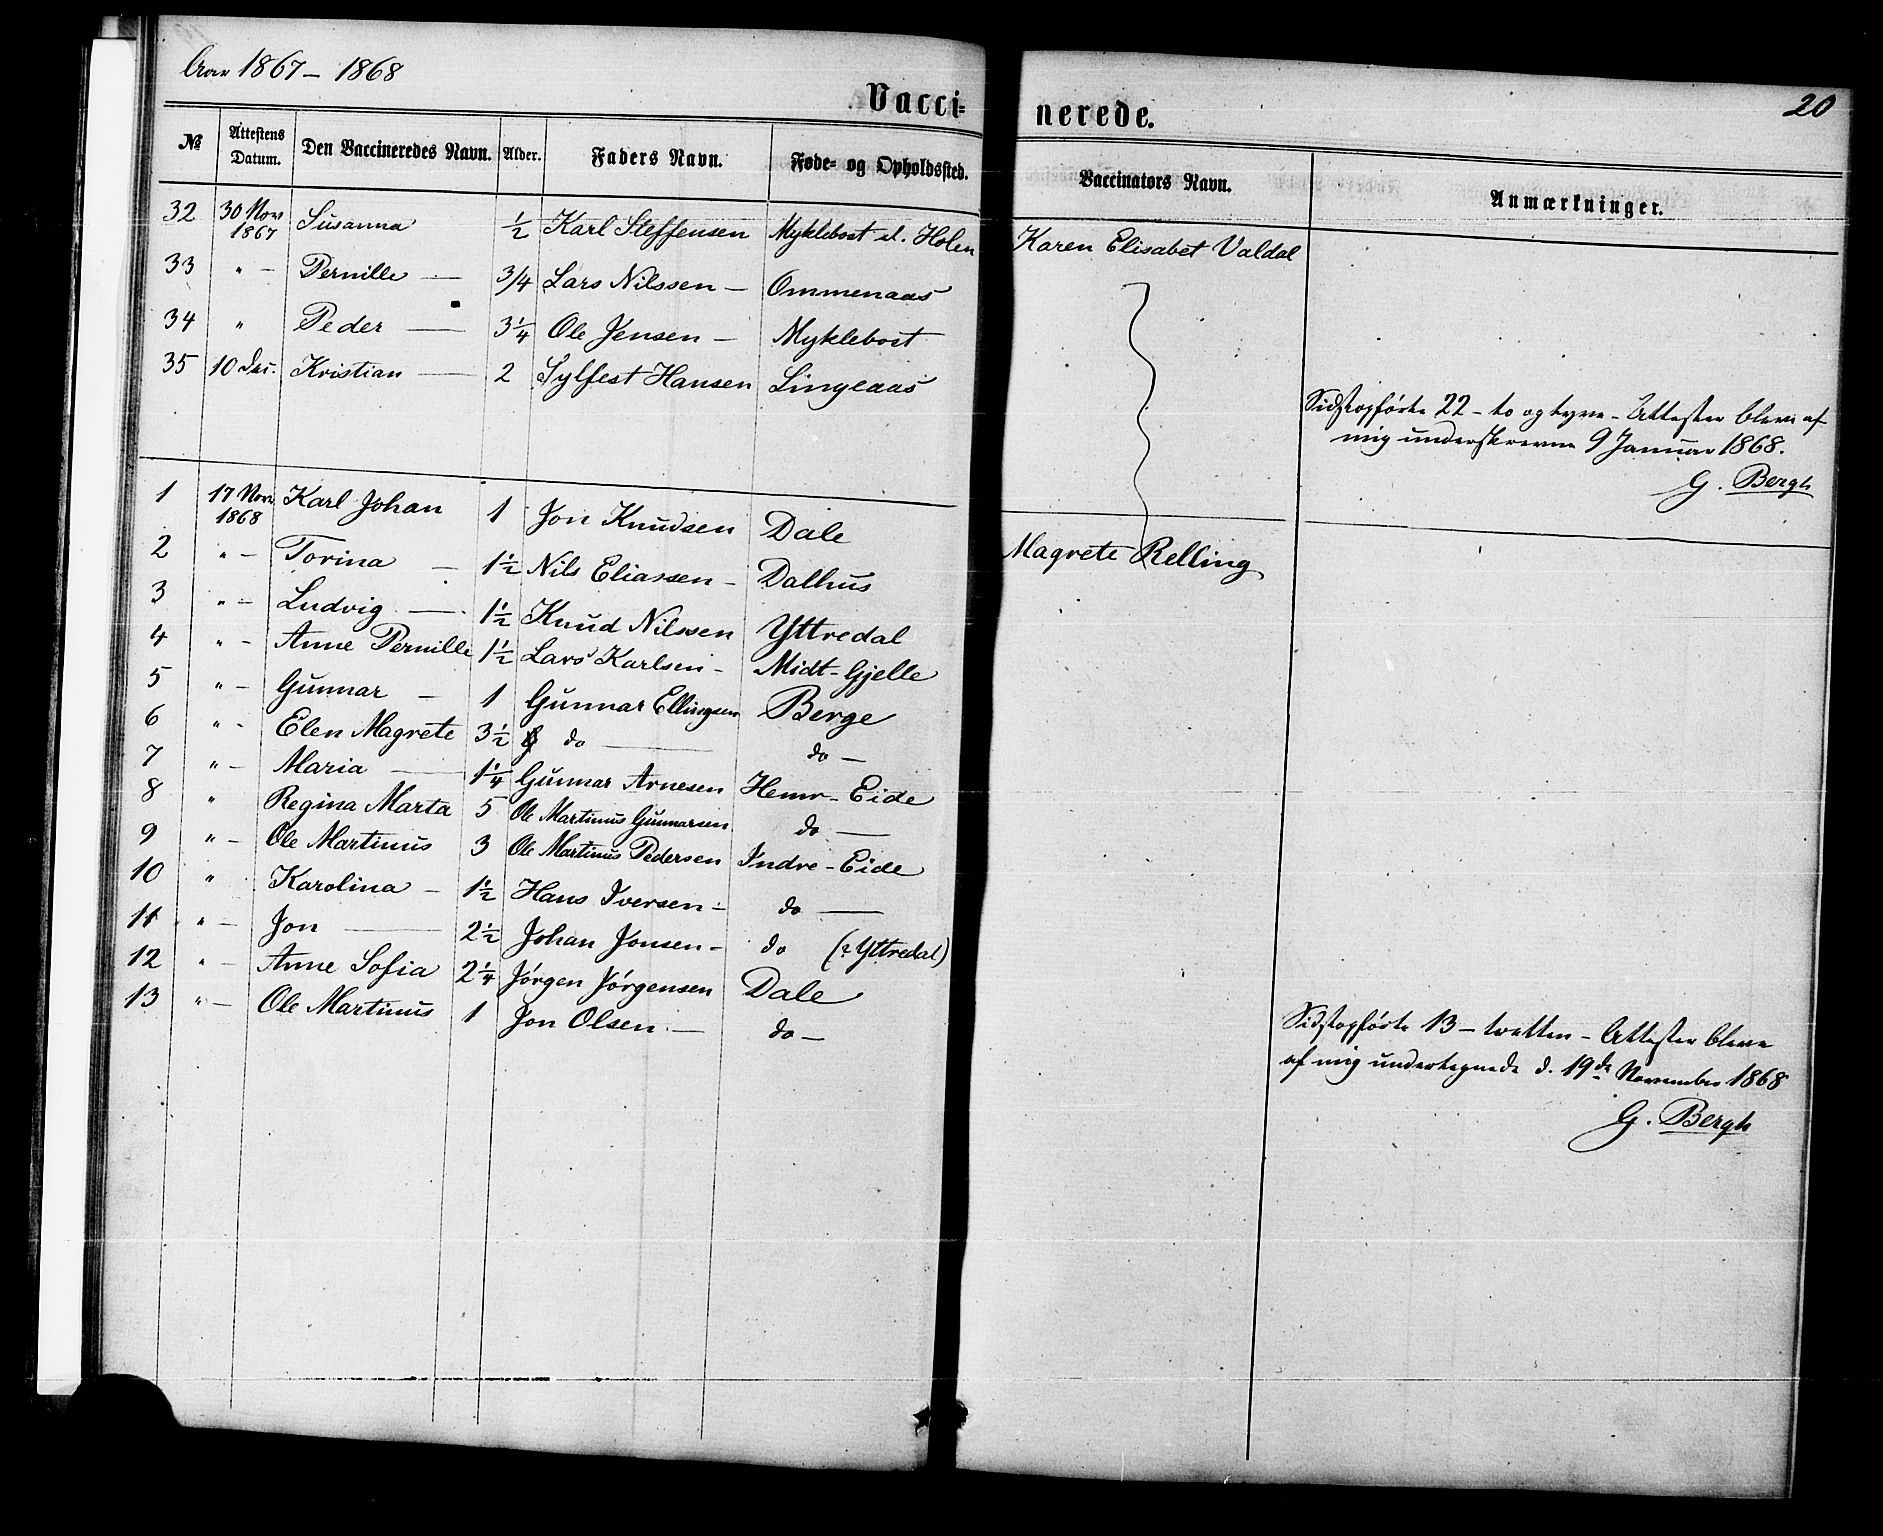 Aar 1867 – 1868
20
Vacci= nerede.
№ Attestens Datum. Den Vaccineredes Navn. Alder. Faders Navn. Føde= og Opholdssted. Vaccinators Navn. Anmærkninger.
32 30 Nov 1867 Susanna ½ Karl Steffensen Myklebost el. Holen Karen Elisabet Valdal
33 " – Pernille — 3/4 Lars Nilssen – Ommenaas
34 " Peder — 3¼ Ole Jensen – Myklebost
35 10 Dec. Kristian — 2 Sylfest Hansen Lingeaas
Sidstopførte 22 – to og tyve – Attester bleve af
mig underskrevne 9 Januar 1868.
G. Bergh
1 17 Nov 1868 Karl Johan 1 Jon Knudsen Dale Magrete Relling
2 " – Torina – 1½ Nils Eliassen – Dalhus
3 " – Ludvig — 1½ Knud Nilssen Yttredal
4 " – Anne Pernille 1½ Lars Karlsen – Midt-Gjelle
5 " – Gunnar – 1 Gunnar Ellingsen Berge
6 " – Elen Magrete 3½ do — do –
7 " – Maria — 1¼ Gunnar Arnesen Hemr-Eide
8 " Regina Marta 5 Ole Martinus Gunnarsen do —
9 " – Ole Martinus 3 Ole Martinus Pedersen Indre-Eide
10 " Karolina – 1½ Hans Iversen – do —
11 " – Jon — 2½ Johan Jonsen – do (? Yttredal)
12 " – Anne Sofia 2¼ Jørgen Jørgensen Dale
13 " – Ole Martinus 1 Jon Olsen – do –
Sidstopførte 13 – tretten – Attester bleve
af mig undertegnede d. 19de November 1868
G. Bergh